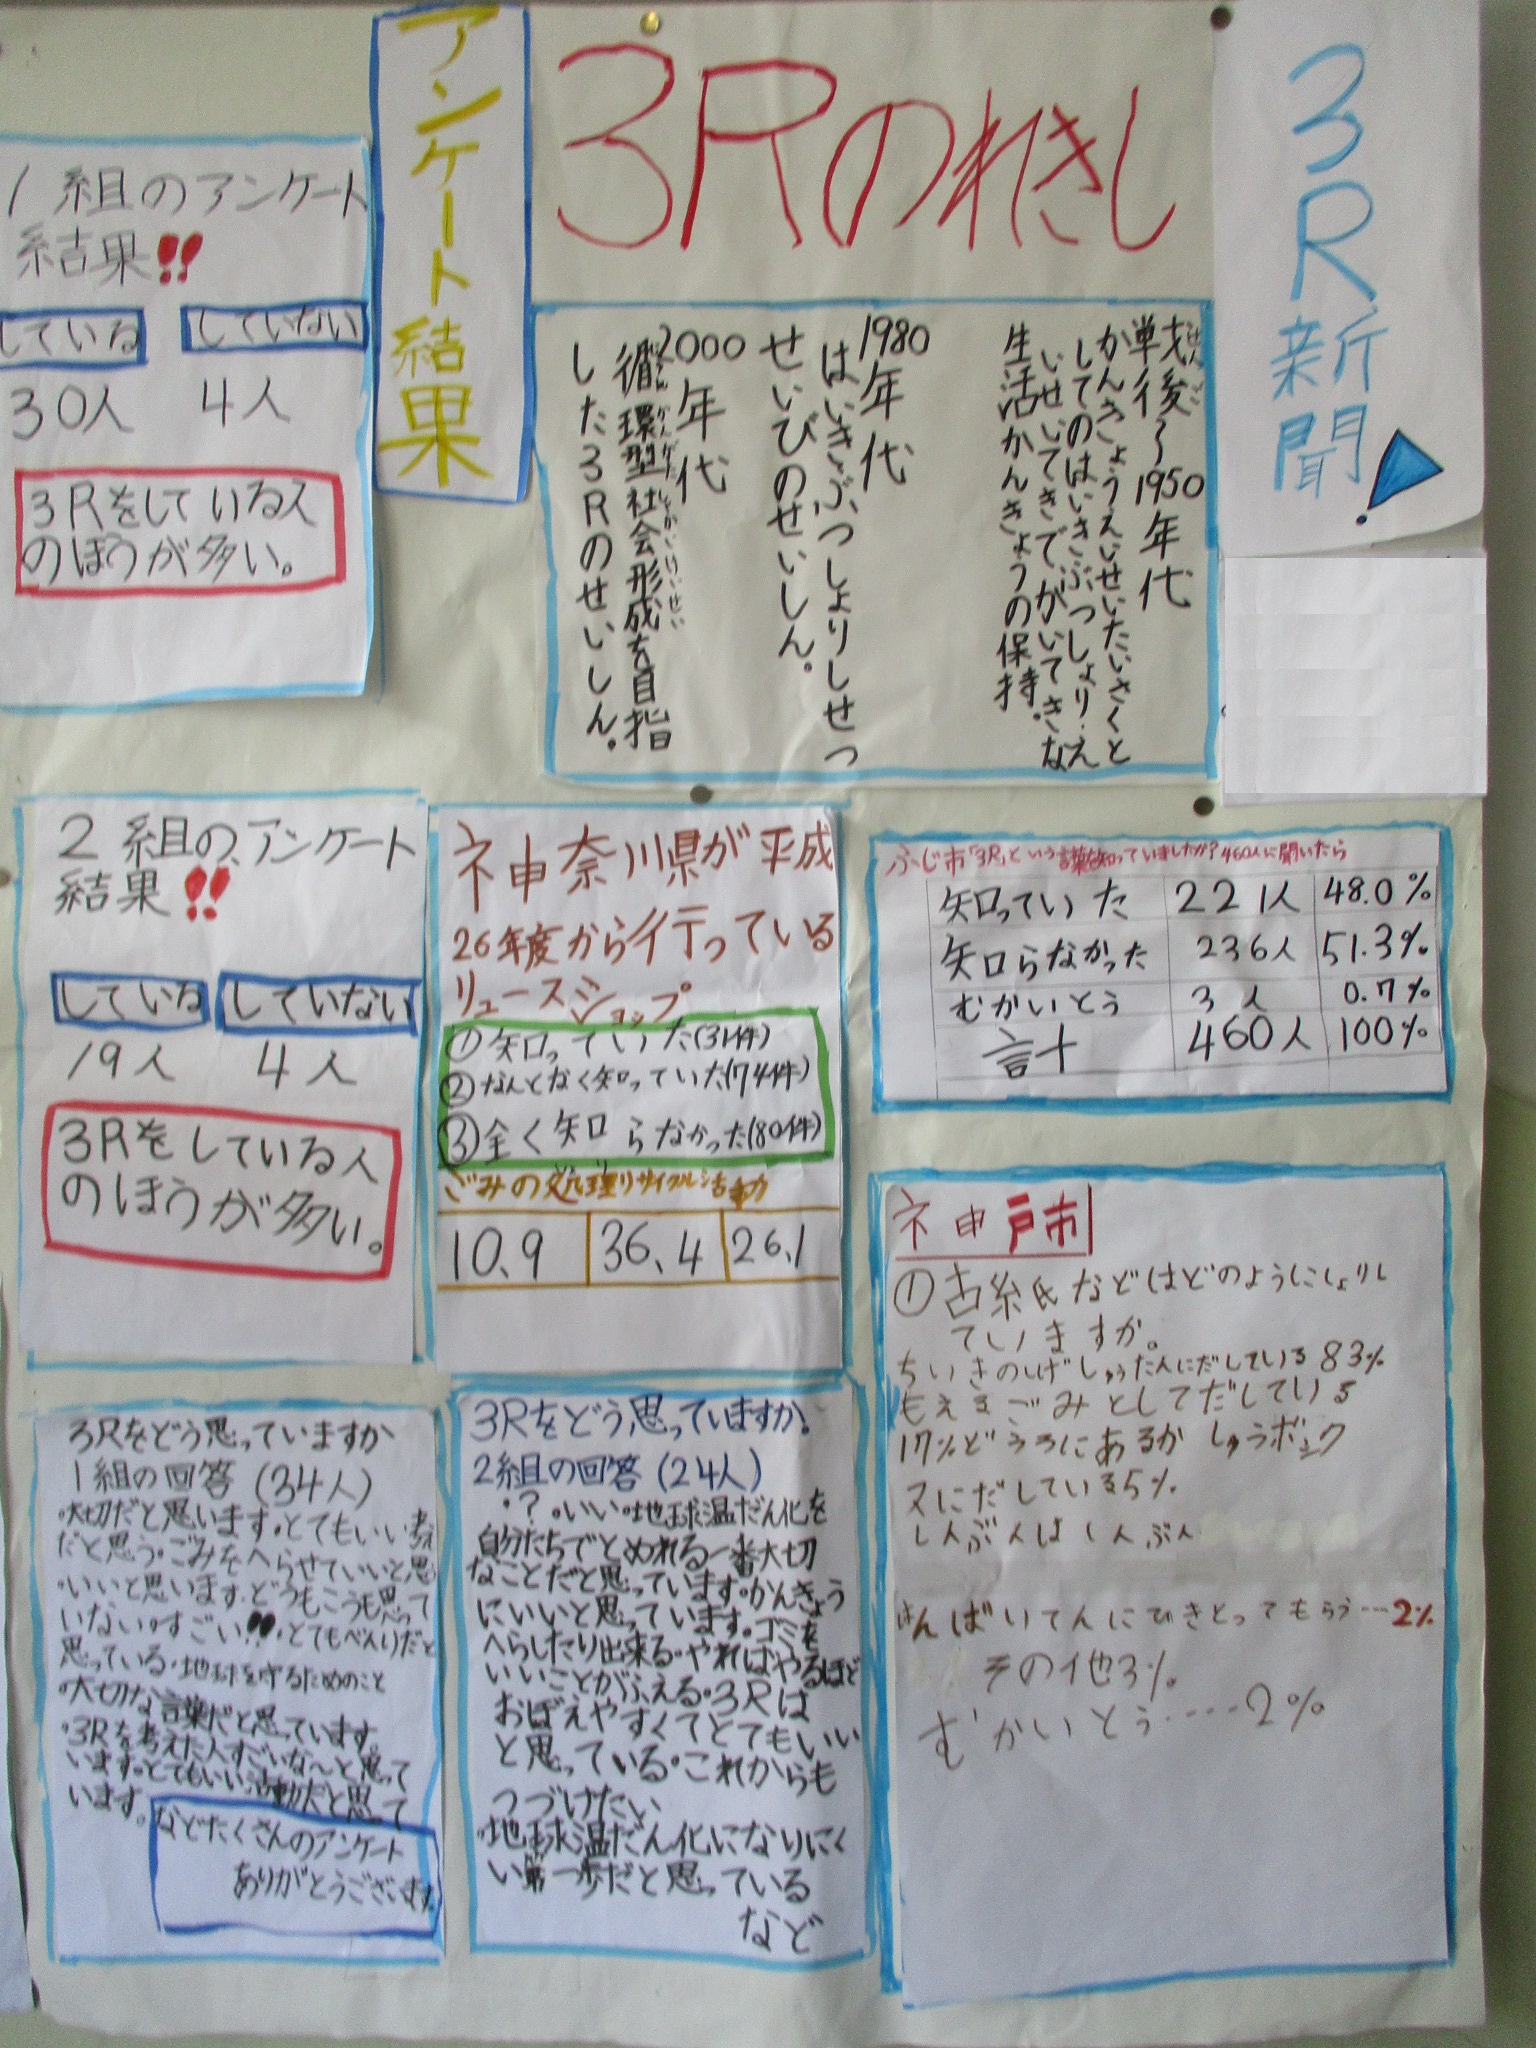 3R新聞
3Rのれきし
戦後〜1950年代
かんきょうえいせいたいさくと
してのはいきぶつしょり。え
いせいてきで、かいてきな
生活かんきょうの保持。
1980年代
はいきぶつしょりしせつ
せいびのせいしん。
2000年代
循環型社会形成を目指
した3Rのせいしん。
アンケート結果
1組のアンケート
結果!!
している していない
30人 4人
3Rをしている人
のほうが多い。
2組のアンケート
結果!!
している していない
19人 4人
3Rをしている人
のほうが多い。
神奈川県が平成
26年度から行っている
リユースショップ
①知っていた(31件)
②なんとなく知っていた(74件)
③全く知らなかった(80件)
ごみの処理リサイクル活動
10.9 36.4 26.1
ふじ市「3R」という言葉を知っていましたか?460人に聞いたら
知っていた 221人 48.0%
知らなかった 236人 51.3%
むかいとう 3人 0.7%
計 460人 100%
神戸市
①古紙などはどのようにしょりし
ていますか。
ちいきのしげんしゅうだん人にだしている83%
もえるごみとしてだしている
17%どうろにあるかいしゅうボック
スにだしている5%
しんぶんはしんぶん
はんばいてんにひきとってもらう…2%
その他3%
むかいとう・・・・・2%
3Rをどう思っていますか
1組の回答(34人)
・大切だと思います。・とてもいい考え
だと思う。・ごみをへらせていいと思
・いいと思います。・どうもこうも思って
いない。・すごい!!・とてもべんりだと
思っている・地球を守るためのこと
・大切な言葉だと思っています。
・3Rを考えた人すごいな〜と思って
います。・とてもいい活動だと思って
います。
などたくさんのアンケート
ありがとうございます。
3Rをどう思っていますか!
2組の回答(24人)
・?。・いい・地球温だん化を
自分たちでとめれる一番大切
なことだと思っています。・かんきょう
にいいと思っています。ゴミを
へらしたり出来る・やればやるほど
いいことがふえる。・3Rは
おぼえやすくてとてもいい
と思っている。・これからも
つづけたい
・地球温だん化になりにく
い第一歩だと思っている
など